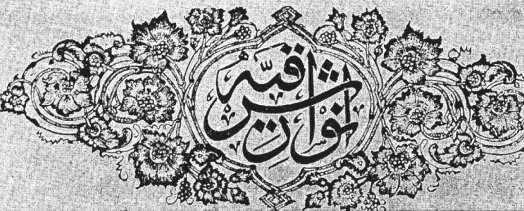 انوار شرقیه